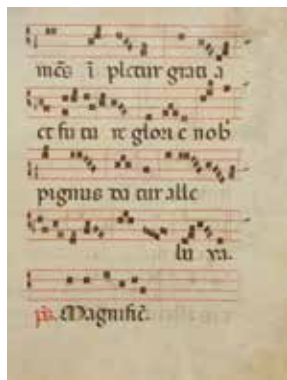 mēs i pletur grati a
et fu tu re glori e nob
pignus da tur alle
lu ya.
ps. Magnific̄.